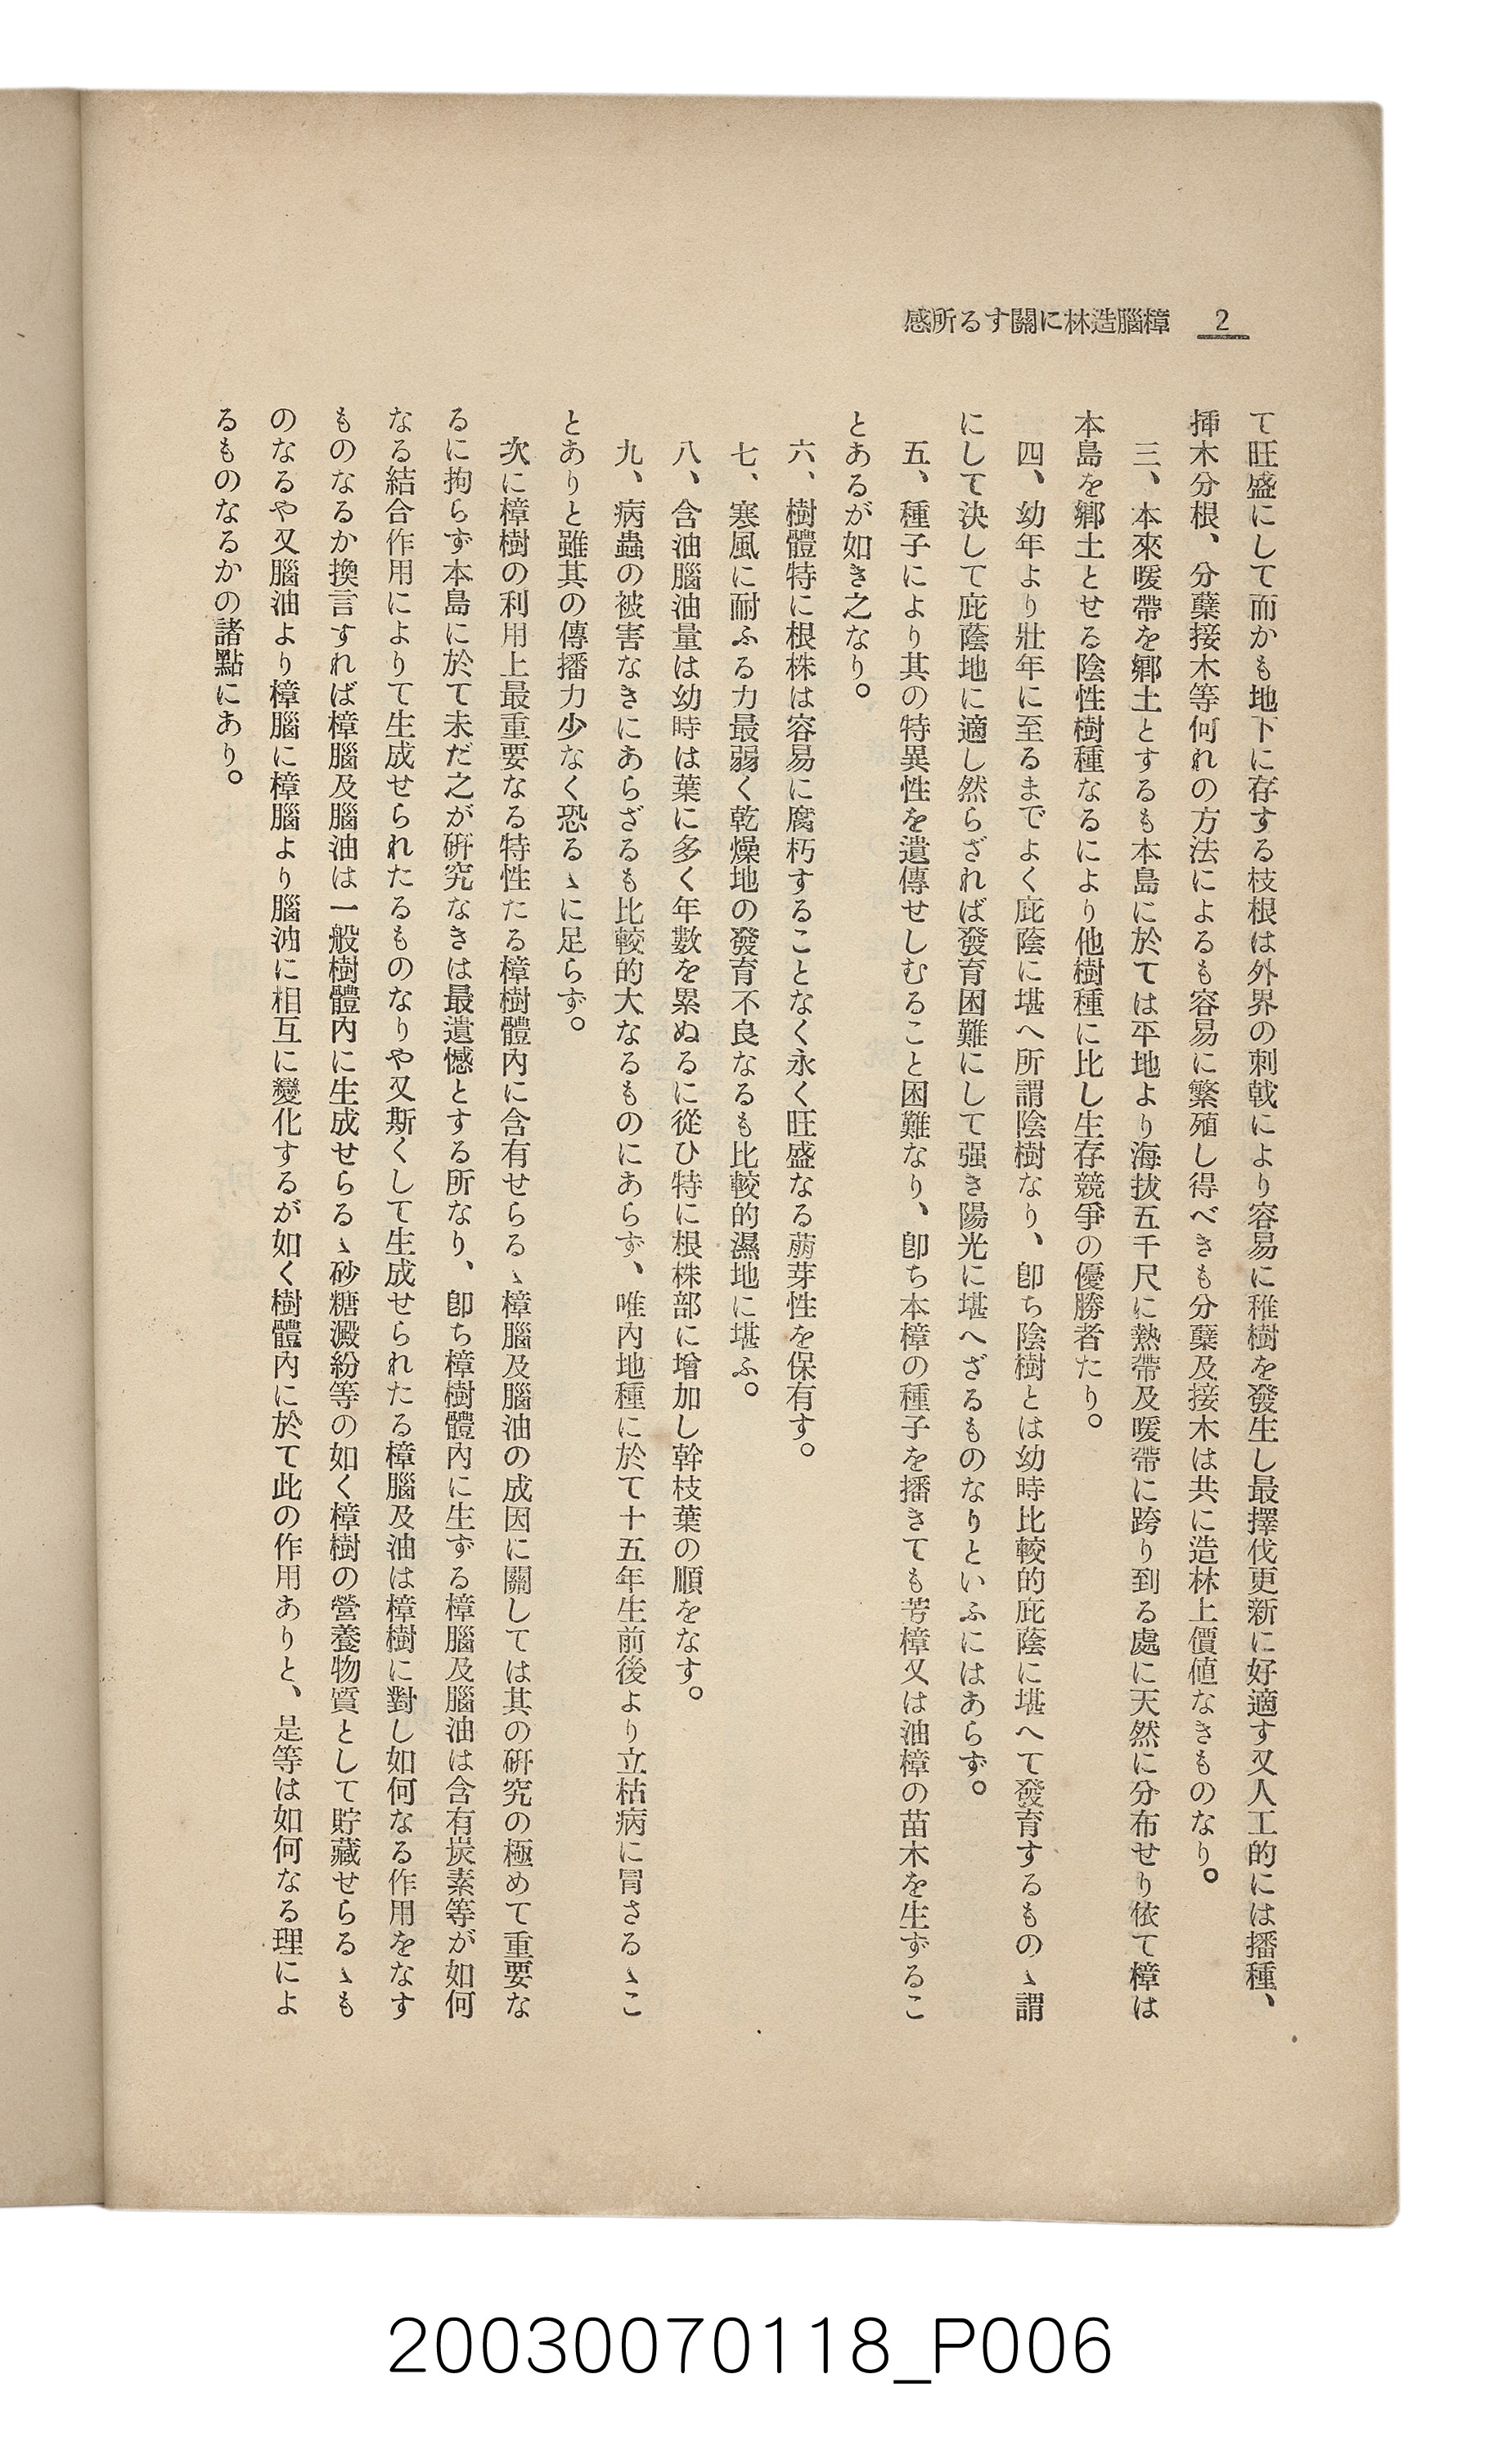 2
樟腦造林に關する所感
て旺盛にして而かも地下に存する枝根は外界の刺戟により容易に稚樹を發生し最擇伐更新に好適す又人工的には播種、
揷木分根、分蘖接木等何れの方法によるも容易に繁殖し得べきも分蘖及接木は共に造林上價値なきものなり。
三、本來暖帶を鄕土とするも本島に於ては平地より海拔五千尺に熱帶及暖帶に跨り到る處に天然に分布せり依て樟は
本島を鄕土とせる陰性樹種なるにより他樹種に比し生存競爭の優勝者たり。
四、幼年より壯年に至るまでよく庇蔭に堪へ所謂陰樹なり、卽ち陰樹とは幼時比較的庇蔭に堪へて發育するものゝ謂
にして決して庇蔭地に適し然らざれば發育困難にして强き陽光に堪へざるものなりといふにはあらず。
五、種子により其の特異性を遺傳せしむること困難なり、卽ち本樟の種子を播きても芳樟又は油樟の苗木を生ずるこ
とあるが如き之なり。
六、樹體特に根株は容易に腐朽することなく永く旺盛なる萠芽性を保有す。
七、寒風に耐ふる力最弱く乾燥地の發育不良なるも比較的濕地に堪ふ。
八、含油腦油量は幼時は葉に多く年數を累ぬるに從ひ特に根株部に增加し幹枝葉の順をなす。
九、病蟲の被害なきにあらざるも比較的大なるものにあらず、唯內地種に於て十五年生前後より立枯病に冒さるゝこ
とありと雖其の傳播力少なく恐るゝに足らず。
次に樟樹の利用上最重要なる特性たる樟樹體內に含有せらるゝ樟腦及腦油の成因に關しては其の硏究の極めて重要な
るに拘らず本島に於て未だ之が硏究なきは最遺憾とする所なり、卽ち樟樹體內に生ずる樟腦及腦油は含有炭素等が如何
なる結合作用によりて生成せられたるものなりや又斯くして生成せられたる樟腦及油は樟樹に對し如何なる作用をなす
ものなるか換言すれば樟腦及腦油は一般樹體內に生成せらるゝ砂糖澱紛等の如く樟樹の營養物質として貯藏せらるゝも
のなるや又腦油より樟腦に樟腦より腦油に相互に變化するが如く樹體內に於て此の作用ありと、是等は如何なる理によ
るものなるかの諸點にあり。
20030070118_P006